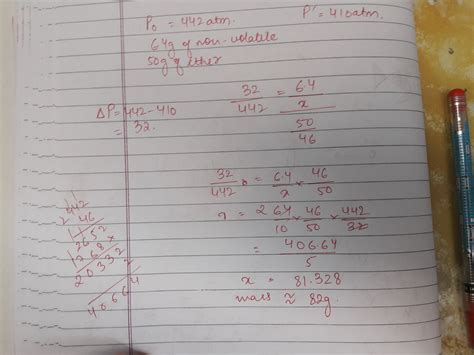 P₀ = 442atm.    P' = 410atm.
64g of non-volatile
50g of ether
ΔP = 442 - 410
= 32.
32/442 = (64/x)/(50/46)
32/442 = 6.4/x × 46/50
x = 2 64/10 × 46/50 × 442/32
= 406.64/5
x = 81.328
mass ≈ 82g.
442
46
2652
1768x
20332
2
40664